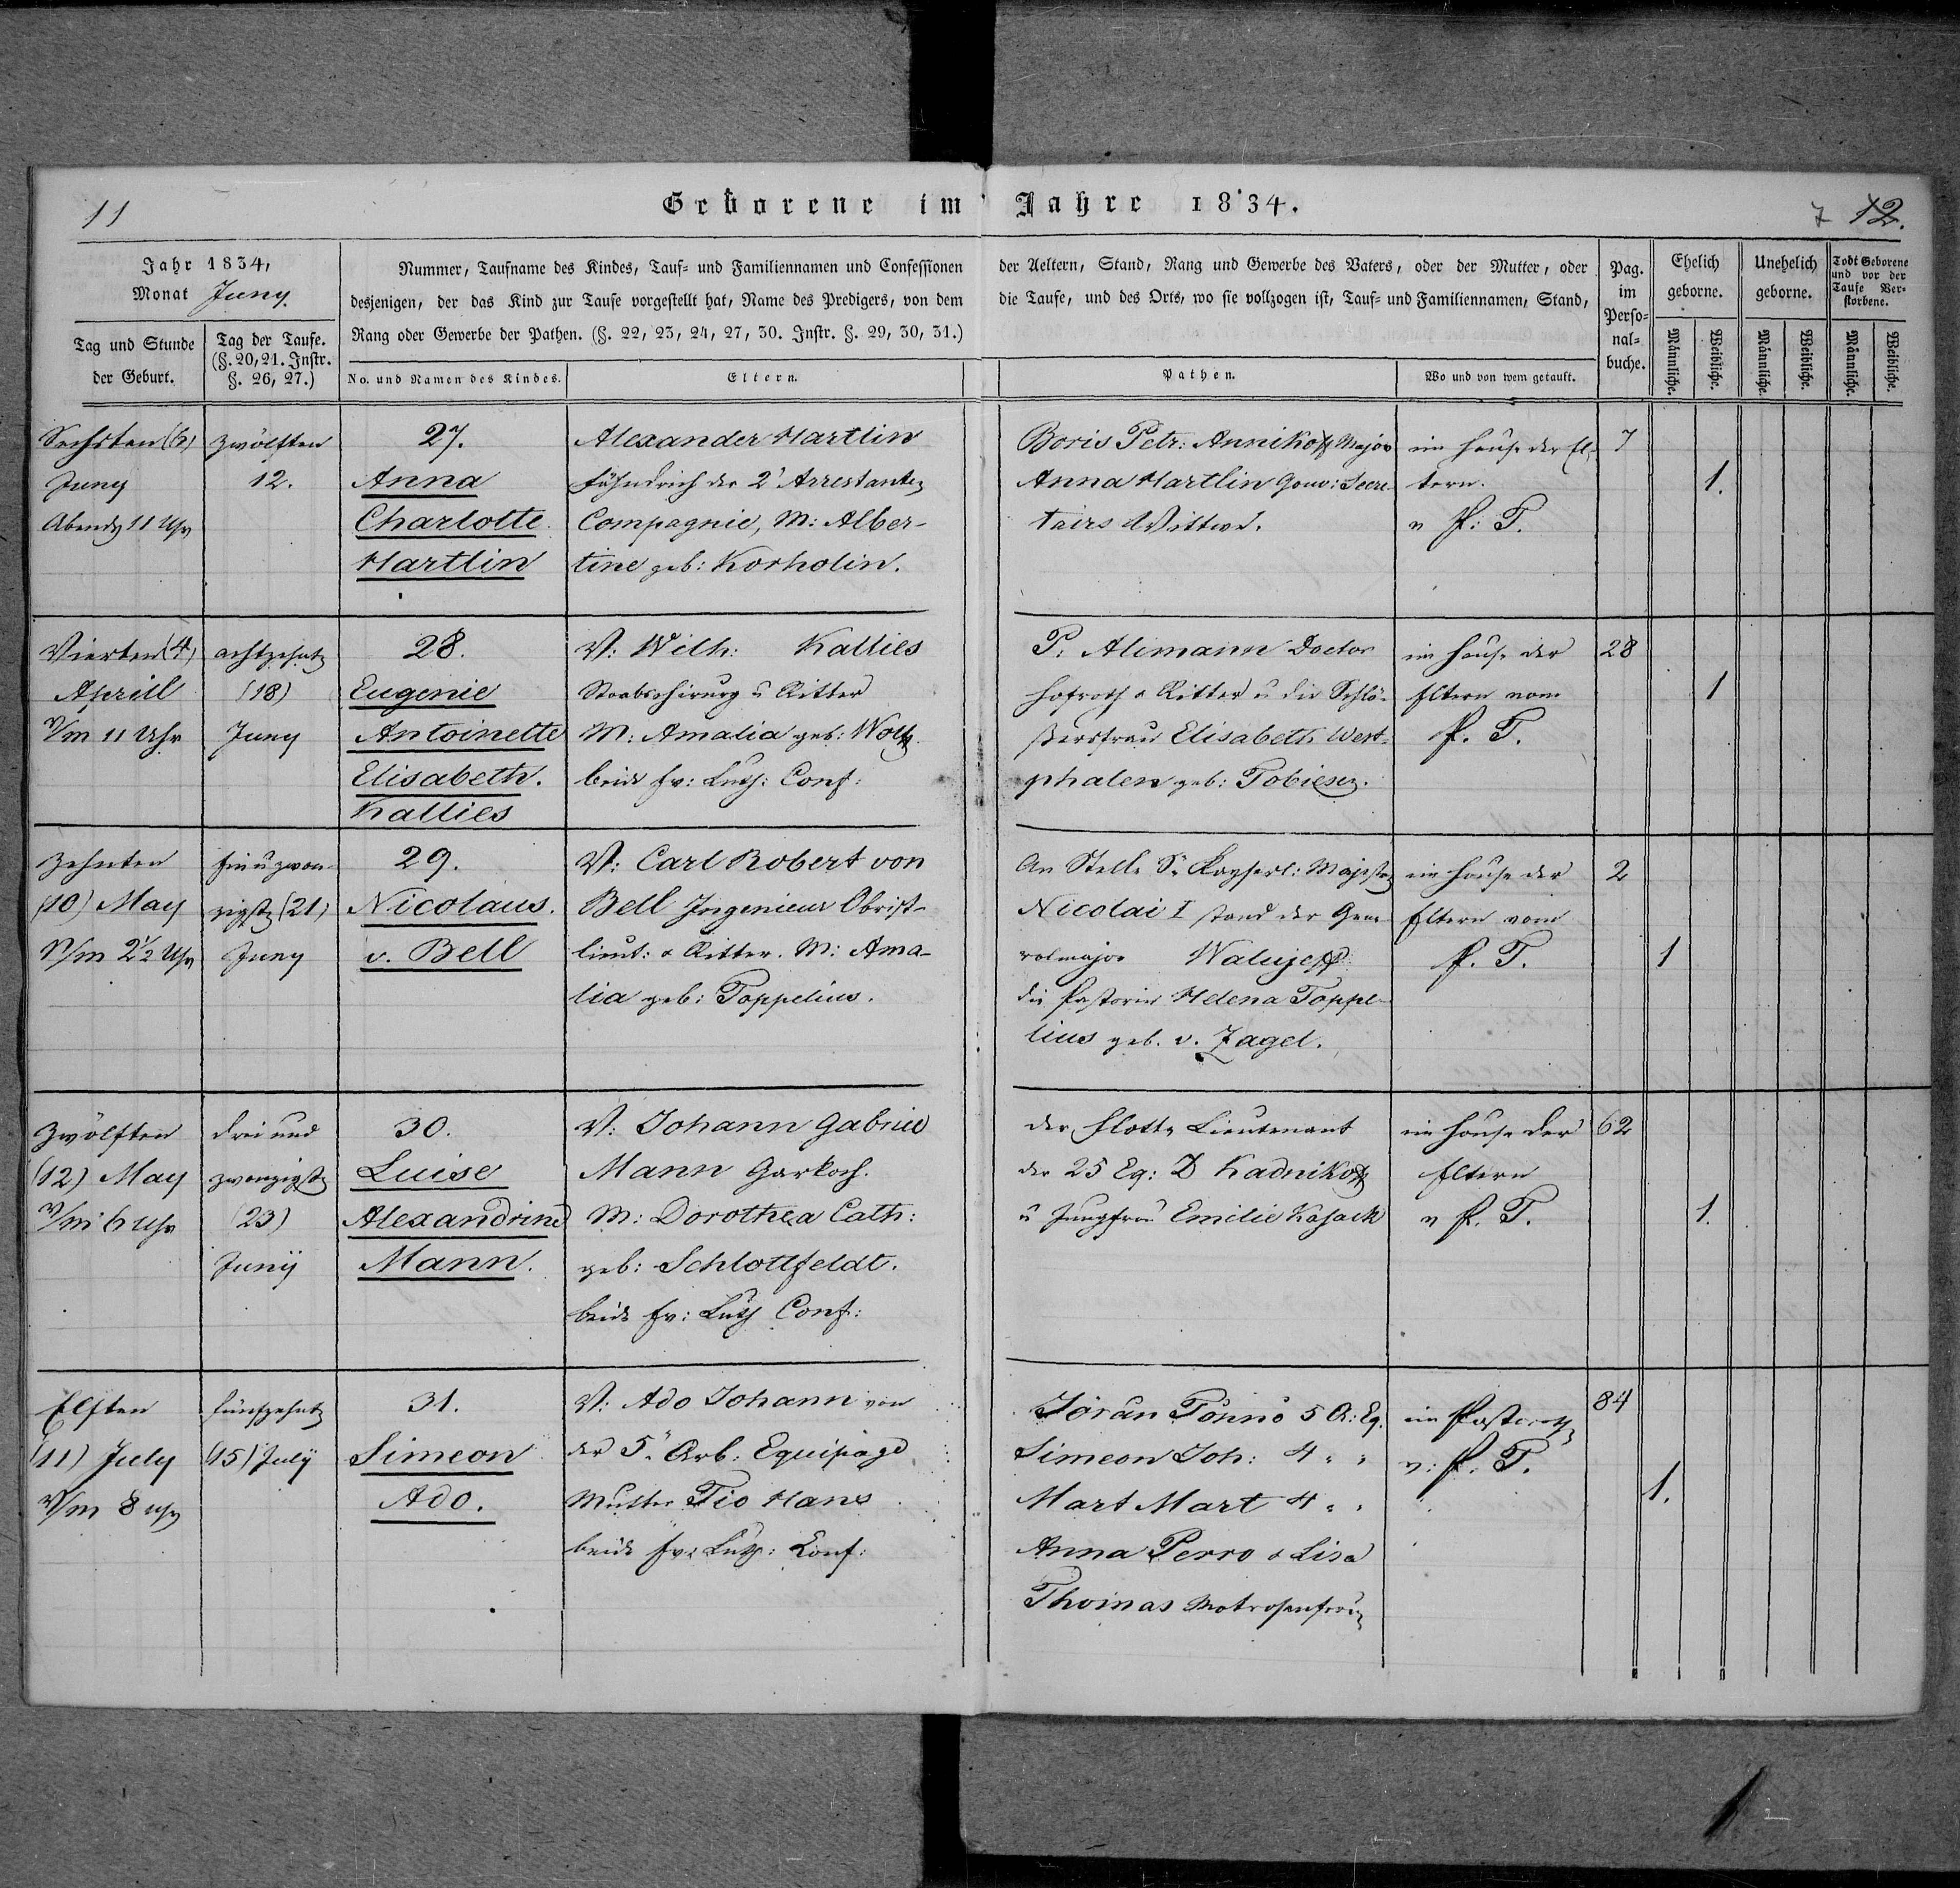 11
Geborene im Jahre 1834.
7 12.
Jahr 1834,
Monat Juny.
Tag und Stunde
der Geburt.
Tag der Taufe.
(§. 20, 21. Instr.
§. 26, 27.)
Nummer, Taufname des Kindes, Tauf- und Familiennamen und Confessionen
desjenigen, der das Kind zur Taufe vorgestellt hat, Name des Predigers, von dem
Rang oder Gewerbe der Pathen. (§. 22, 23, 24, 27, 30. Instr. §. 29, 30, 31.)
No. und Namen des Kindes.
Eltern.
der Aeltern, Stand, Rang und Gewerbe des Vaters, oder der Mutter, oder
die Taufe, und des Orts, wo sie vollzogen ist, Tauf- und Familiennamen, Stand,
Pathen.
Wo und von wem getauft.
Pag.
im
Perso-
nal-
buche.
Ehelich
geborne.
Männliche.
Weibliche.
Unehelich
geborne.
Männliche.
Weibliche.
Todt Geborene
und vor der
Taufe Ver-
storbene.
Männliche.
Weibliche.
Sechsten (6)
Juny
Abends 11 Uhr
zwölften
12.
27.
Anna
Charlotte
Hartlin
Alexander Hartlin
Fähndrich der 2' Arrestanten
Compagnie, M: Alber-
tine geb: Korholin.
Boris Petr: Annikoff Major
Anna Hartlin Gouv: Secre-
tairs Wittwe.
im Hause der El-
tern.
v P: T.
7
1.
Vierten (4)
Aprill
V/m 11 Uhr
achtzehnten
(18)
Juny
28.
Eugenie
Antoinette
Elisabeth.
Kallies
V: Wilh: Kallies
Staabschirurg u Ritter
M: Amalia geb: Wolff.
beide Ev: Luth: Conf:
P. Alimann Doctor
Hofrath & Ritter u die Schlö-
ßersfrau Elisabeth West-
phalen geb: Tobiesen.
im Hause der
Eltern vom
P. T.
28
1
Zehnten
(10) May
N/m 2½ Uhr
Ein u zwan-
zigsten (21)
Juny
29.
Nicolaus.
v. Bell
V: Carl Robert von
Bell Ingenieur Obrist-
lieut: & Ritter. M: Ama-
lia geb: Toppelius.
An Stelle Sr Kayserl: Majestät
Nicolai I stand der Gene-
ralmajor Walujeff
die Pastorin Helena Toppe-
lius geb. v. Zagel.
im Hause der
Eltern vom
P. T.
2
1
Zwölften
(12) May
V/m 6 Uhr
drei und
zwanzigsten
(23)
Juny
30.
Luise
Alexandrine
Mann.
V: Johann Gabriel
Mann Garkoch.
M: Dorothea Cath:
geb: Schlottfeldt.
beide Ev: Luth Conf:
der Flotte Lieutenant
der 25 Eq: D Kadnikoff
u Jungfrau Emilie Kasack
im Hause der
Eltern
v P. T.
62
1.
Elften
(11) July
V/m 8 Uhr
fünfzehnten
(15) July
31.
Simeon
Ado.
V: Ado Johann von
der 5. Arb: Equipage
Mutter Tio Hans
beide Ev: Luth: Conf:
Jöran Tönno 5 A: Eq.
Simeon Joh: 4 " "
Mart Mart 4 " "
Anna Perro & Lisa
Thomas Matrosenfrauen
im Pastorath
v: P. T.
84
1.